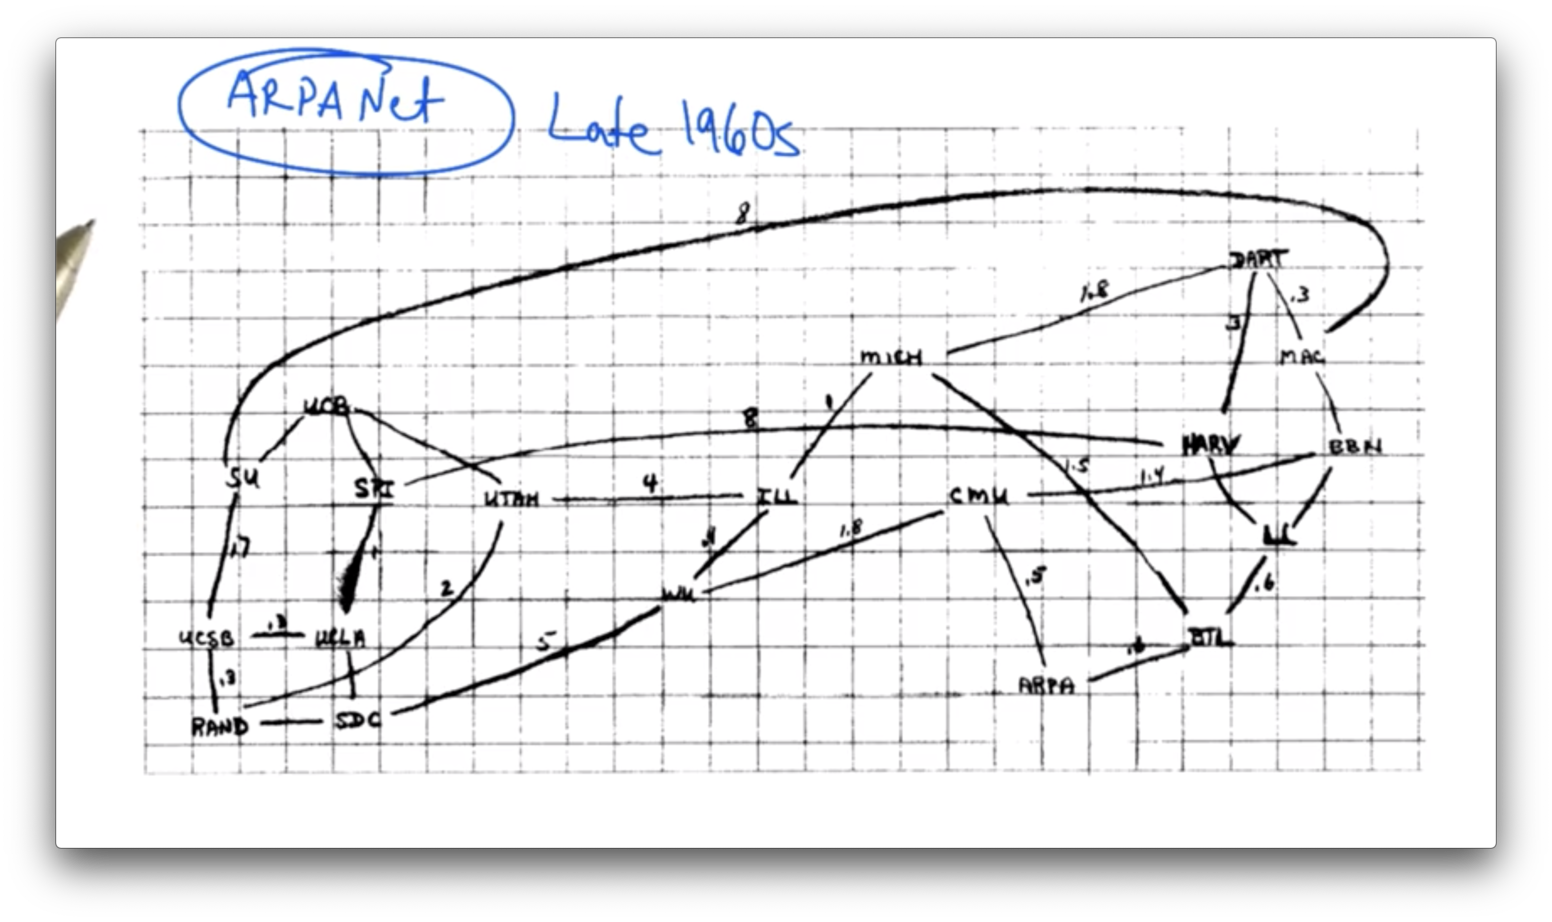 ARPA Net Late 1960s
8
DART
1.8 .3
3
MICH MAC
UCB 1 8
HARV BBN
SU SRI 1.5 1.4
UTAH 4 ILL CMU
LL
.17 1 .4 1.8
2 WU .5 .6
UCSB .3 UCLA 5 BTL
.3 ARPA
RAND SDC